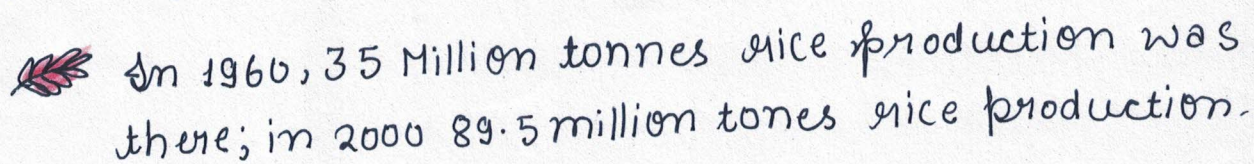 In 1960, 35 Million tonnes rice production was
there; in 2000 89.5 million tones rice production.